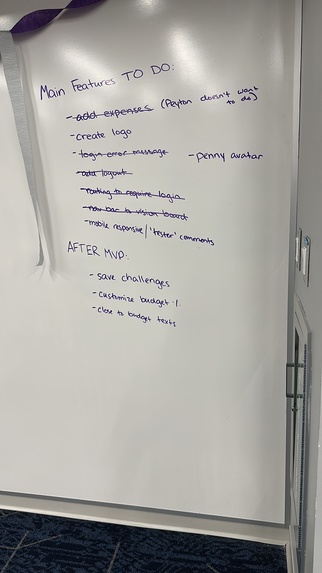 Main Features TO DO:
- add expenses (Peyton doesn't want
to do)
- create logo
- login error message
- penny avatar
- add logout
- routing to require login
- nav bar to vision board
- mobile responsive / 'tester' comments
AFTER MVP:
- save challenges
- customize budget %
- close to budget texts